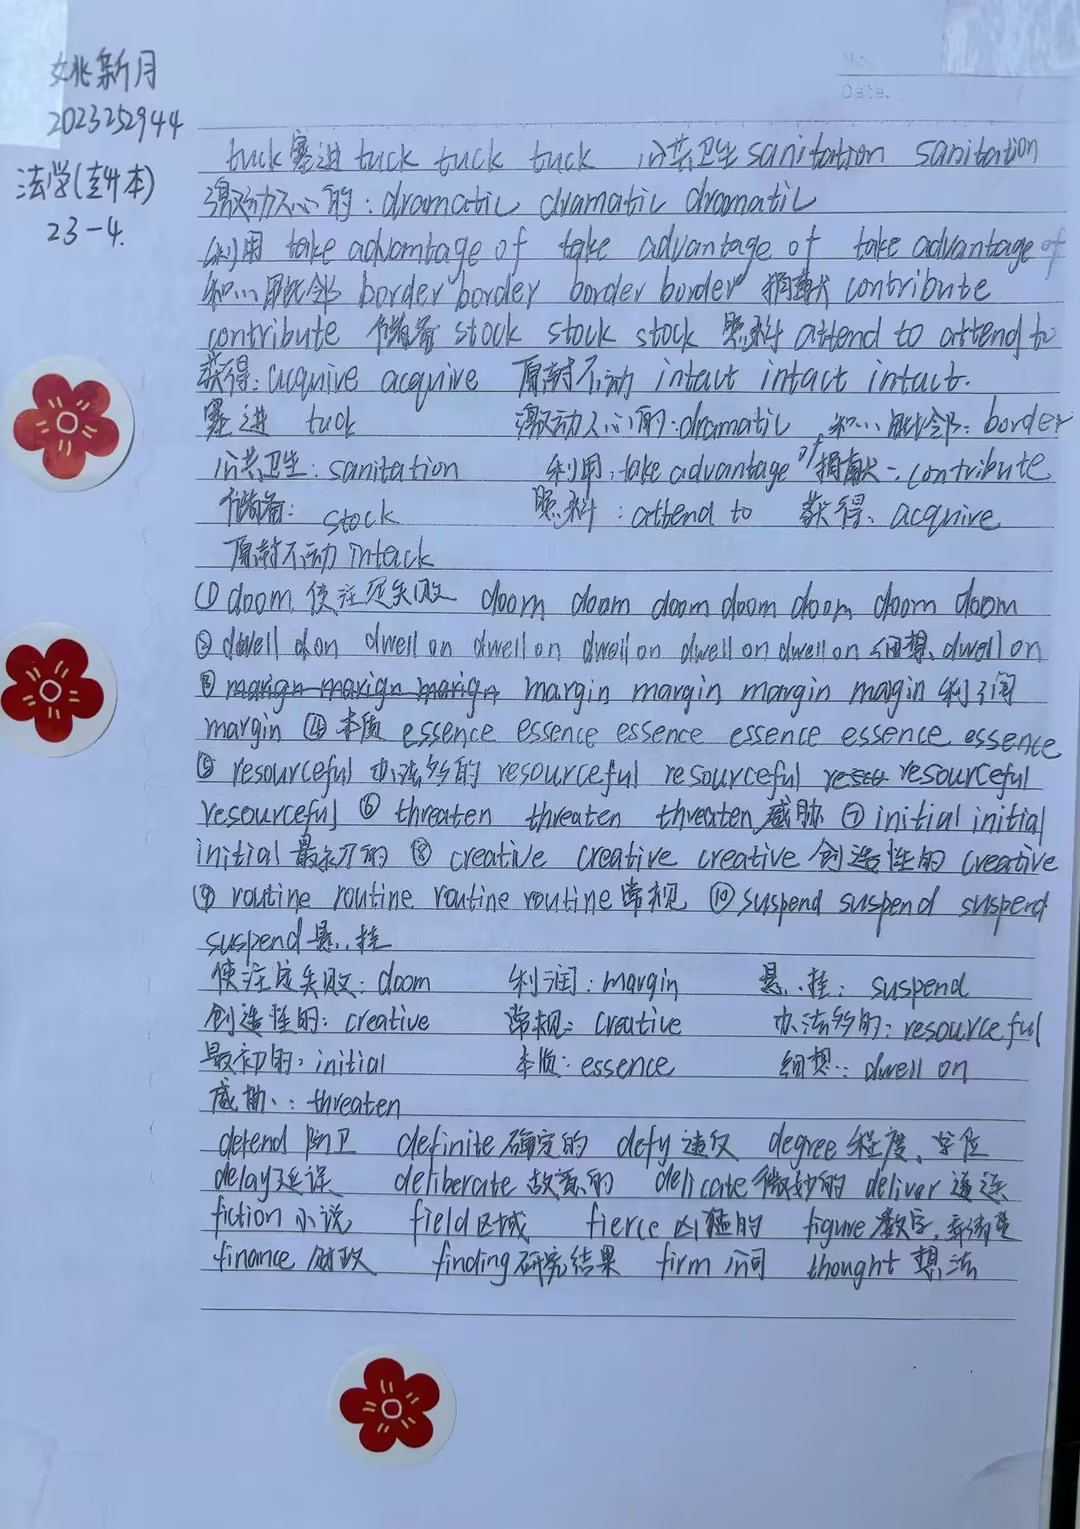 姚新月
2023252944
法学(专升本)
23-4.
tuck 塞进 tuck tuck tuck 公共卫生 sanitation sanitation
激动人心的: dramatic dramatic dramatic
利用 take advantage of take advantage of take advantage of
和…毗邻 border border border border 捐献 contribute
contribute 储备 stock stock stock 照料 attend to attend to
获得: acquire acquire 原封不动 intact intact intact.
塞进 tuck 激动人心的: dramatic 和…毗邻: border
公共卫生: sanitation 利用: take advantage of 捐献: contribute
储备: stock 照料: attend to 获得: acquire
原封不动 intack
① doom 使注定失败 doom doom doom doom doom doom doom
② dwell on dwell on dwell on dwell on dwell on dwell on 细想 dwell on
③ marign marign marign margin margin margin magin 利润
margin ④ 本质 essence essence essence essence essence essence
⑤ resourceful 办法多的 resourceful resourceful resourceful
resourceful ⑥ threaten threaten threaten 威胁 ⑦ initial initial
initial 最初的 ⑧ creative creative creative 创造性的 creative
⑨ routine routine routine routine 常规 ⑩ suspend suspend suspend
suspend 悬挂
使注定失败: doom 利润: margin 悬挂: suspend
创造性的: creative 常规: creative 办法多的: resourceful
最初的: initial 本质: essence 细想: dwell on
威胁: threaten
defend 防卫 definite 确定的 defy 违反 degree 程度、学位
delay 延误 deliberate 故意的 delicate 微妙的 deliver 递送
fiction 小说 field 区域 fierce 凶猛的 figure 数字,
finance 财政 finding 研究结果 firm 公司 thought 想法